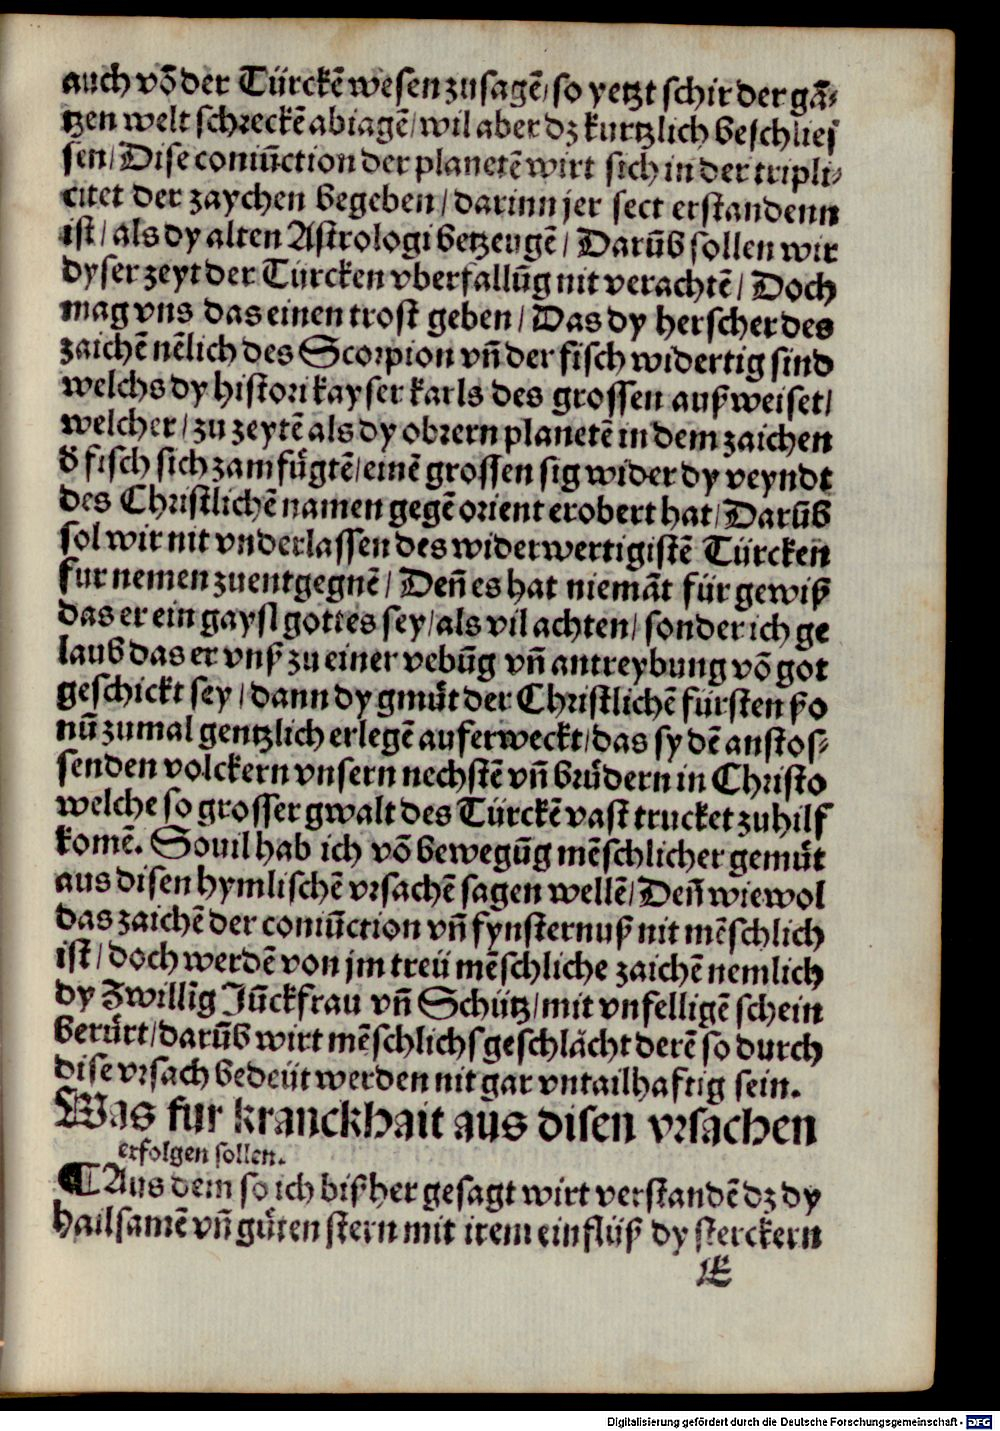 auch võ der Türckẽ wesen zusagẽ/ so yetzt schir der gã⸗
tzen welt schreckẽ abiagẽ/ wil aber dz kurtzlich beschlies
sen/ Dise coniũction der planetẽ wirt sich in der tripli⸗
citet der zaychen begeben/ darinn jer sect erstandenn
ist/ als dy alten Astrologi betzeugẽ/ Darũb sollen wir
dyser zeyt der Türcken vberfallũg nit verachtẽ/ Doch
mag vns das einen trost geben/ Das dy herscher des
zaichẽ nẽlich des Scorpion vñ der fisch widertig sind
welchs dy histori kayser karls des grossen außweiset/
welcher/ zu zeytẽ als dy obrern planetẽ in dem zaichen
d̕ fisch sich zamfuͤgtẽ/ einẽ grossen sig wider dy veyndt
des Christlichẽ namen gegẽ orient erobert hat/ Darũb
sol wir nit vnderlassen des widerwertigistẽ Türcken
fur nemen zuentgegnẽ/ Deñ es hat niemãt für gewiß
das er ein gaysl gottes sey/ als vil achten/ sonder ich ge
laub das er vnß zu einer vebũg vñ antreybung võ got
geschickt sey/ dann dy gmuͤt der Christlichẽ fürsten ßo
nũ zumal gentzlich erlegẽ auferweckt/ das sy dẽ anstos⸗
senden volckern vnsern nechstẽ vñ bruͤdern in Christo
welche so grosser gwalt des Türckẽ vast trucket zuhilf
komẽ. Souil hab ich võ bewegũg mẽschlicher gemuͤt
aus disen hymlischẽ vrsachẽ sagen wellẽ/ Deñ wiewol
das zaichẽ der coniũction vñ fynsternuß nit mẽschlich
ist/ doch werdẽ von jm treü mẽschliche zaichẽ nemlich
dy Zwillĩg Jũckfrau vñ Schütz/ mit vnselligẽ schein
beruͤrt/ darũb wirt mẽschlichs geschlaͤcht derẽ so durch
dise vrsach bedeüt werden nit gar vntailhaftig sein.
Was fur kranckhait aus disen vrsachen
erfolgen sollen.
¶ Aus dem so ich bißher gesagt wirt verstandẽ dz dy
hailsamẽ vñ guͤten stern mit irem einflüß dy sterckern
E
Digitalisierung gefördert durch die Deutsche Forschungsgemeinschaft - DFG